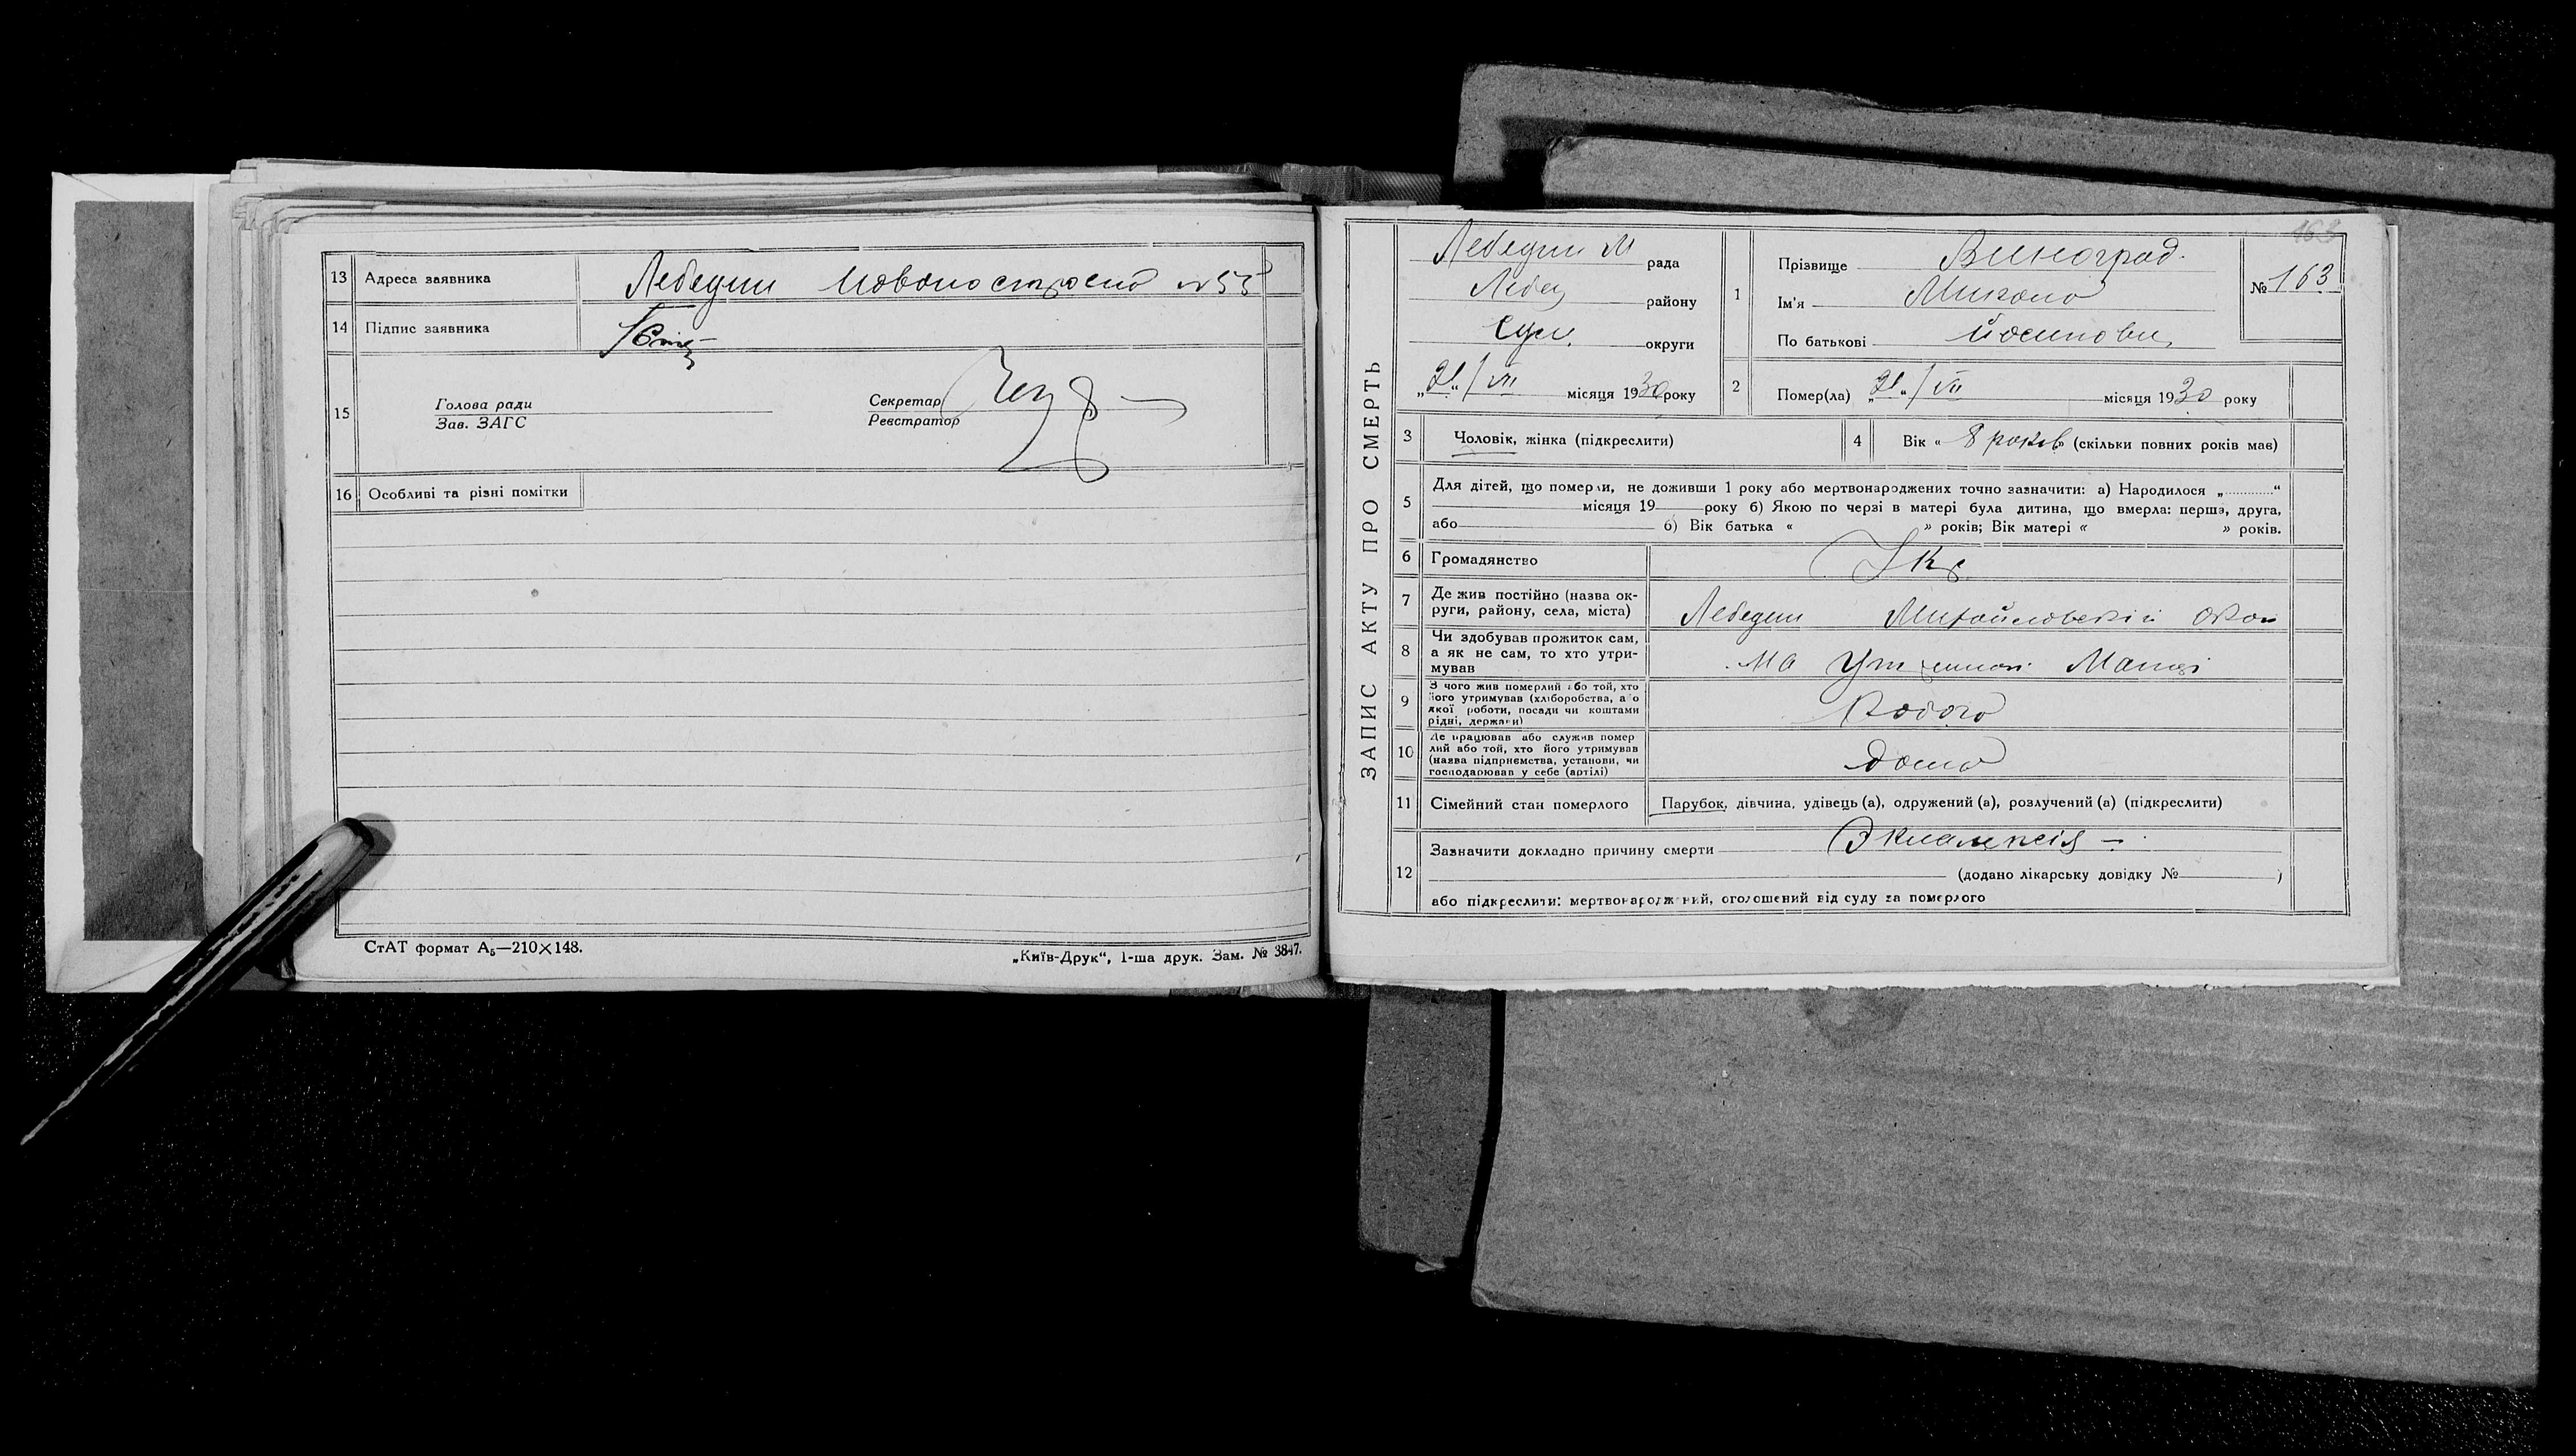 13 Адреса заявника Лебедин Новопостроєна №53
14 Підпис заявника
15 Голова ради
Зав. ЗАГС
Секретар
Реєстратор
16 Особливі та різні помітки
СтАТ формат А₅—210×148.
„Київ-Друк“, 1-ша друк. Зам. № 3847.
ЗАПИС АКТУ ПРО СМЕРТЬ
163
Лебедин М рада
Лебед району
Сум. округи
„21“/VII місяця 1930 року
1 Прізвище Виноград
Ім'я Микола
По батькові Йосипови
№ 163
2 Помер(ла) „21“/VII місяця 1930 року
3 Чоловік, жінка (підкреслити)
4 Вік « 8 років » (скільки повних років мав)
5 Для дітей, що померли, не доживши 1 року або мертвонароджених точно зазначити: а) Народилося „ “
місяця 19 року б) Якою по черзі в матері була дитина, що вмерла: перша, друга,
або б) Вік батька « » років; Вік матері « » років.
6 Громадянство Укр
7 Де жив постійно (назва ок-
руги, району, села, міста) Лебедин Михайловский
8 Чи здобував прожиток сам,
а як не сам, то хто утри-
мував На Матері
9 З чого жив померлий або той, хто
його утримував (хліборобства, або
якої роботи, посади чи коштами
рідні, держави)
10 Де працював або служив помер
лий або той, хто його утримував
(назва підприємства, установи, чи
господарював у себе (артілі) дома
11 Сімейний стан померлого Парубок, дівчина, удівець (а), одружений (а), розлучений (а) (підкреслити)
12 Зазначити докладно причину смерти Экклампсія –
(додано лікарську довідку № )
або підкреслити: мертвонароджений, оголошений від суду за померлого